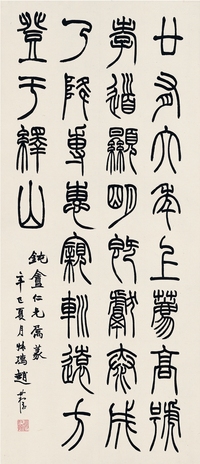 廿有六年上薦高號
孝道顯明既獻泰成
乃降專惠寴𨊠遠方
登于繹山
鈍盦仁兄屬篆
辛巳夏月 趙